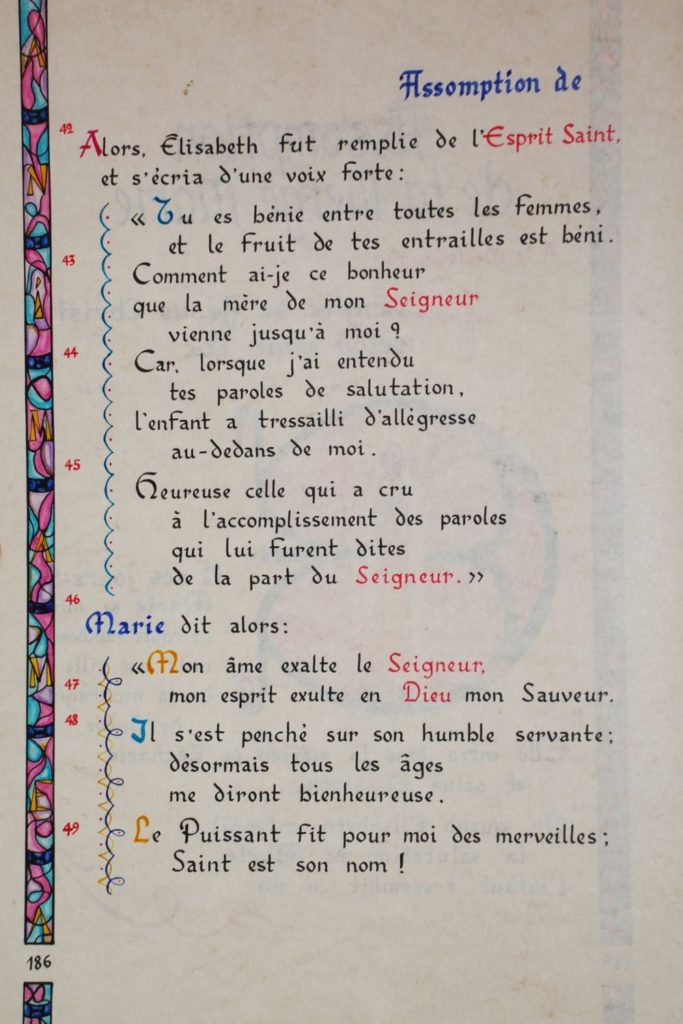 Assomption de
42 Alors, Élisabeth fut remplie de l'Esprit Saint,
et s'écria d'une voix forte :
« Tu es bénie entre toutes les femmes,
et le fruit de tes entrailles est béni.
43 Comment ai-je ce bonheur
que la mère de mon Seigneur
vienne jusqu'à moi ?
44 Car, lorsque j'ai entendu
tes paroles de salutation,
l'enfant a tressailli d'allégresse
au-dedans de moi.
45 Heureuse celle qui a cru
à l'accomplissement des paroles
qui lui furent dites
de la part du Seigneur. »
46 Marie dit alors :
« Mon âme exalte le Seigneur,
47 mon esprit exulte en Dieu mon Sauveur.
48 Il s'est penché sur son humble servante ;
désormais tous les âges
me diront bienheureuse.
49 Le Puissant fit pour moi des merveilles ;
Saint est son nom !
186